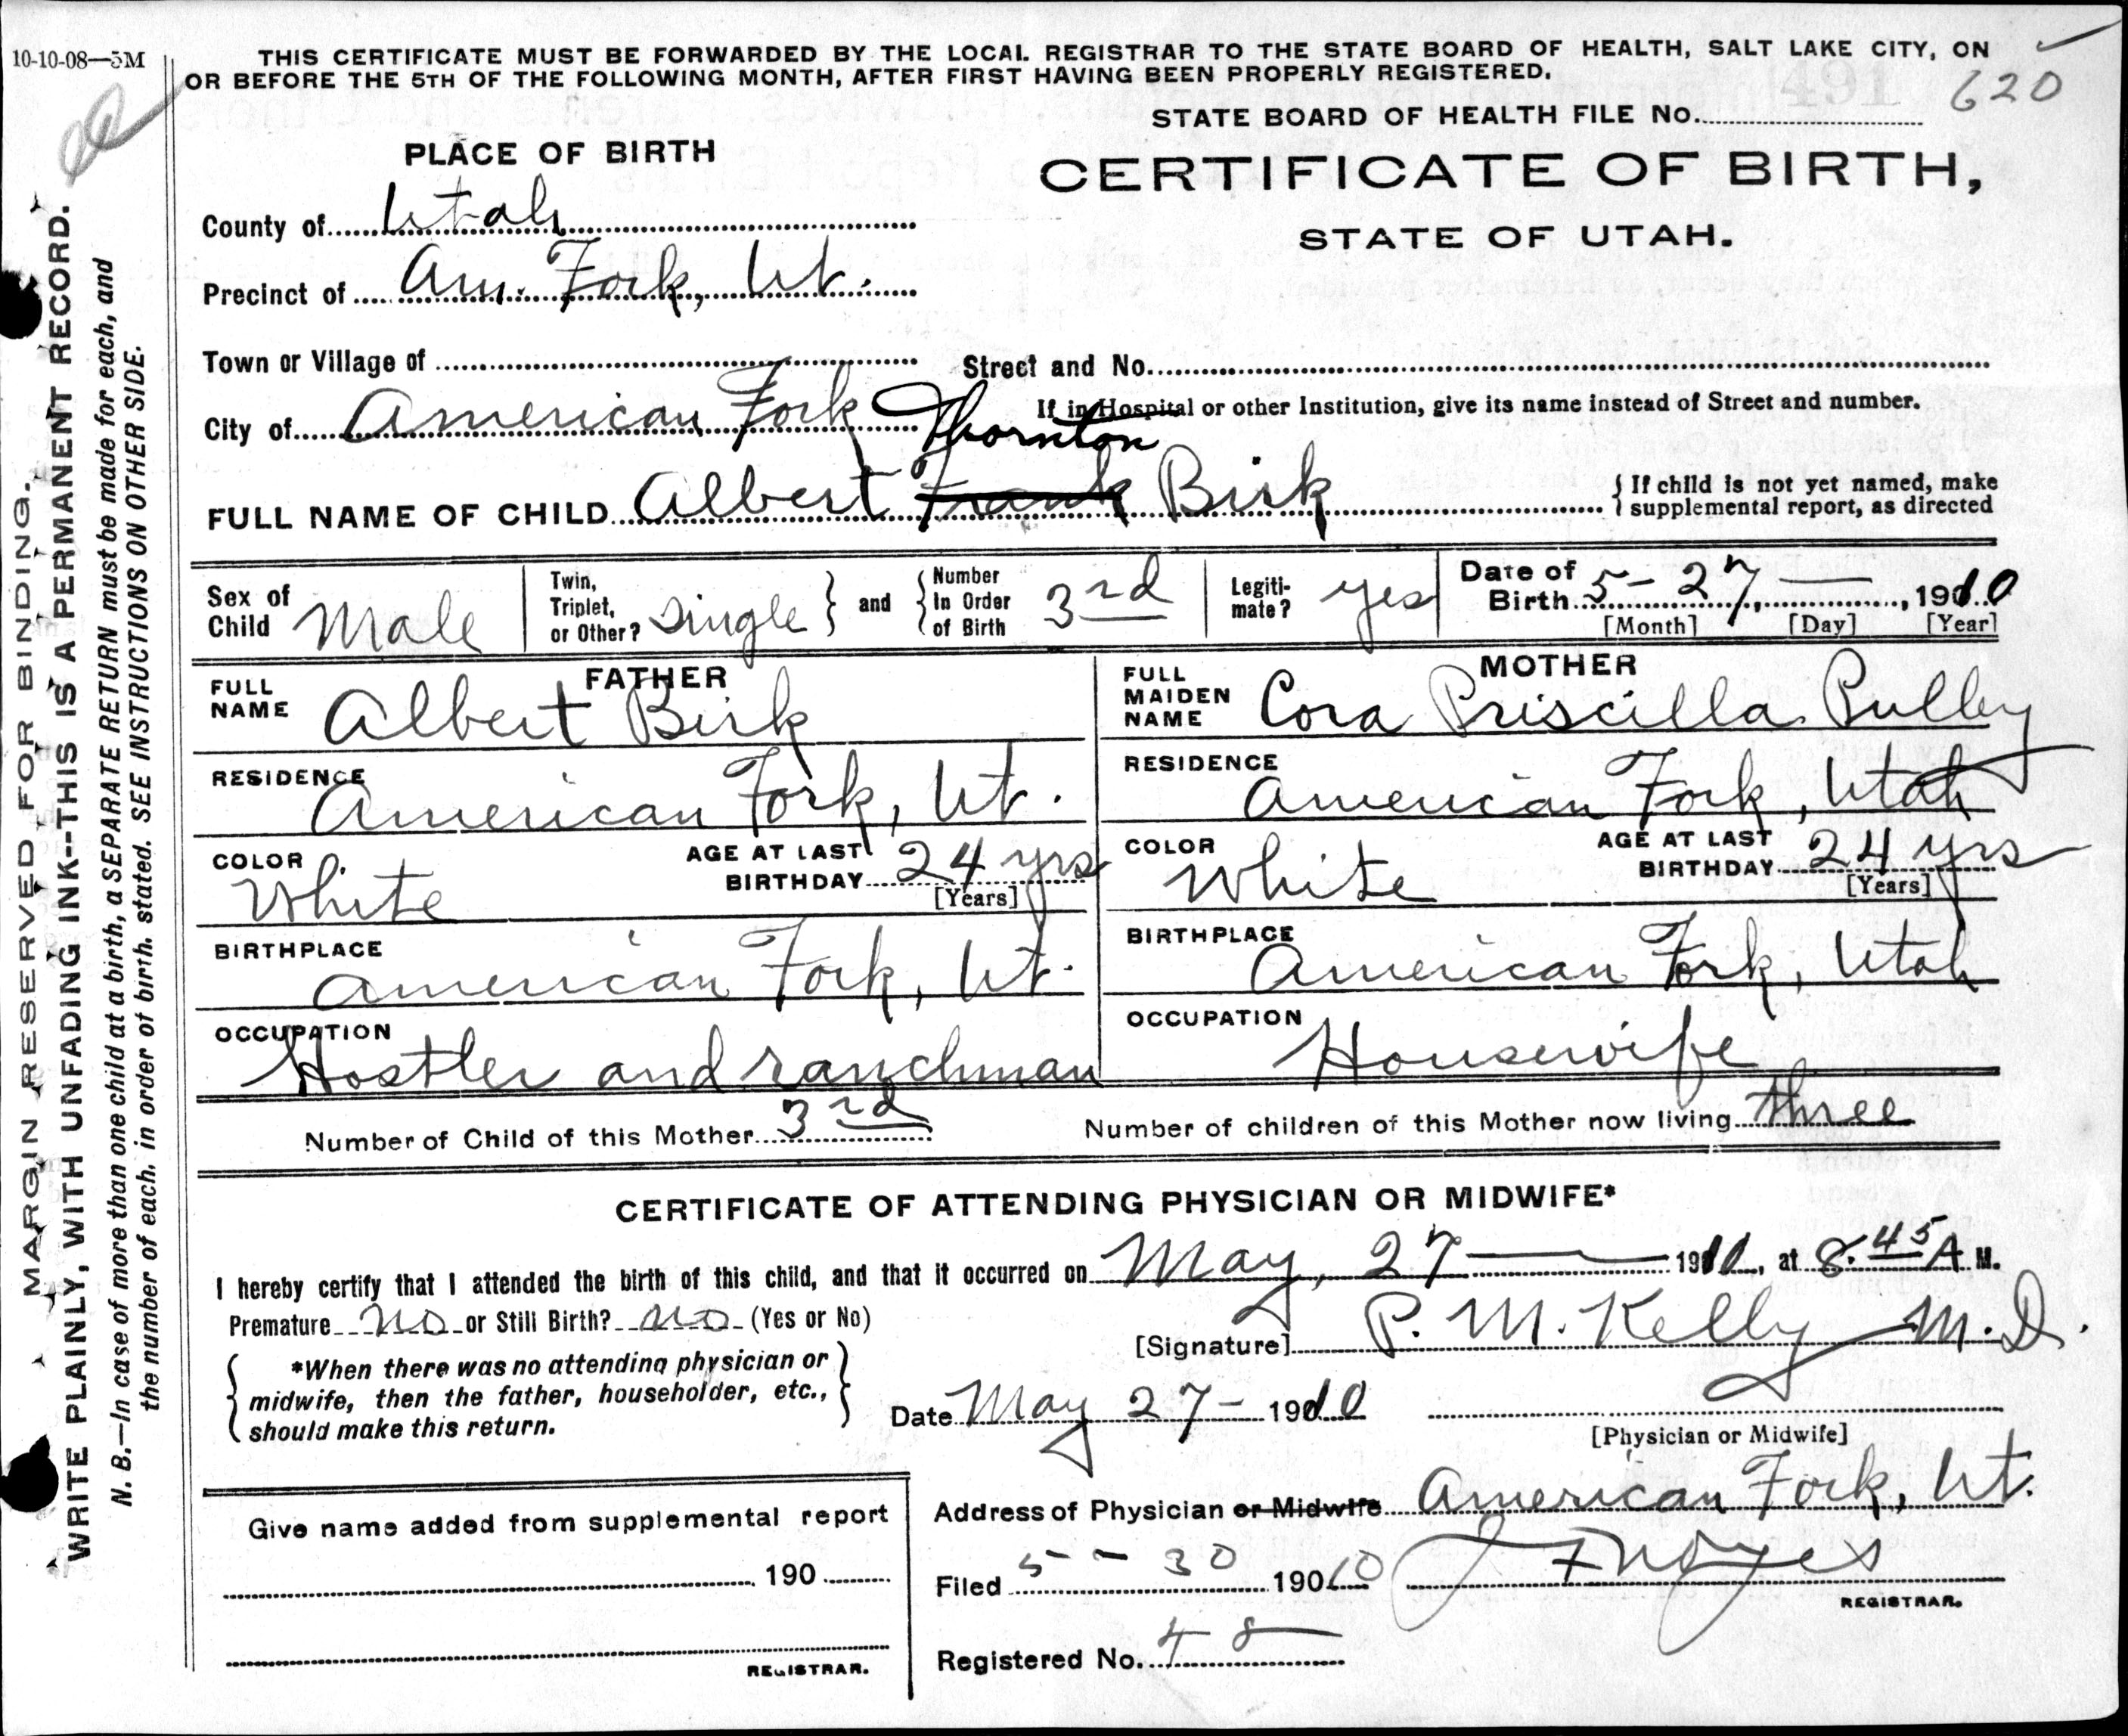 10-10-08—5M
THIS CERTIFICATE MUST BE FORWARDED BY THE LOCAL REGISTRAR TO THE STATE BOARD OF HEALTH, SALT LAKE CITY, ON
OR BEFORE THE 5TH OF THE FOLLOWING MONTH, AFTER FIRST HAVING BEEN PROPERLY REGISTERED.
620
STATE BOARD OF HEALTH FILE NO.
PLACE OF BIRTH
CERTIFICATE OF BIRTH,
STATE OF UTAH.
County of Utah
Precinct of Am. Fork, Ut.
Town or Village of
Street and No.
City of American Fork
If in Hospital or other Institution, give its name instead of Street and number.
Thornton
FULL NAME OF CHILD Albert Frank Birk
{ If child is not yet named, make
supplemental report, as directed
Sex of Child Male
Twin, Triplet, or Other? Single } and { Number In Order of Birth 3rd
Legitimate? yes
Date of Birth 5-27, —, 1910
[Month] [Day] [Year]
FATHER
FULL NAME Albert Birk
RESIDENCE American Fork, Ut.
COLOR White
AGE AT LAST BIRTHDAY 24 yrs
[Years]
BIRTHPLACE American Fork, Ut.
OCCUPATION Hostler and ranchman
MOTHER
FULL MAIDEN NAME Cora Priscilla Pulley
RESIDENCE American Fork, Utah
COLOR White
AGE AT LAST BIRTHDAY 24 yrs
[Years]
BIRTHPLACE American Fork, Utah
OCCUPATION Housewife
Number of Child of this Mother 3rd
Number of children of this Mother now living three
CERTIFICATE OF ATTENDING PHYSICIAN OR MIDWIFE*
I hereby certify that I attended the birth of this child, and that it occurred on May, 27 — 1910, at 8.45 A M.
Premature no or Still Birth? no (Yes or No)
[Signature] P. M. Kelly M.D.
{ *When there was no attending physician or
midwife, then the father, householder, etc.,
should make this return. }
Date May 27 - 1910
[Physician or Midwife]
Address of Physician or Midwife American Fork, Ut.
Give name added from supplemental report
190
REGISTRAR.
Filed 5 - 30 1910
J F Noyes
REGISTRAR.
Registered No. 48
MARGIN RESERVED FOR BINDING.
WRITE PLAINLY, WITH UNFADING INK--THIS IS A PERMANENT RECORD.
N. B.—In case of more than one child at a birth, a SEPARATE RETURN must be made for each, and
the number of each. in order of birth. stated. SEE INSTRUCTIONS ON OTHER SIDE.